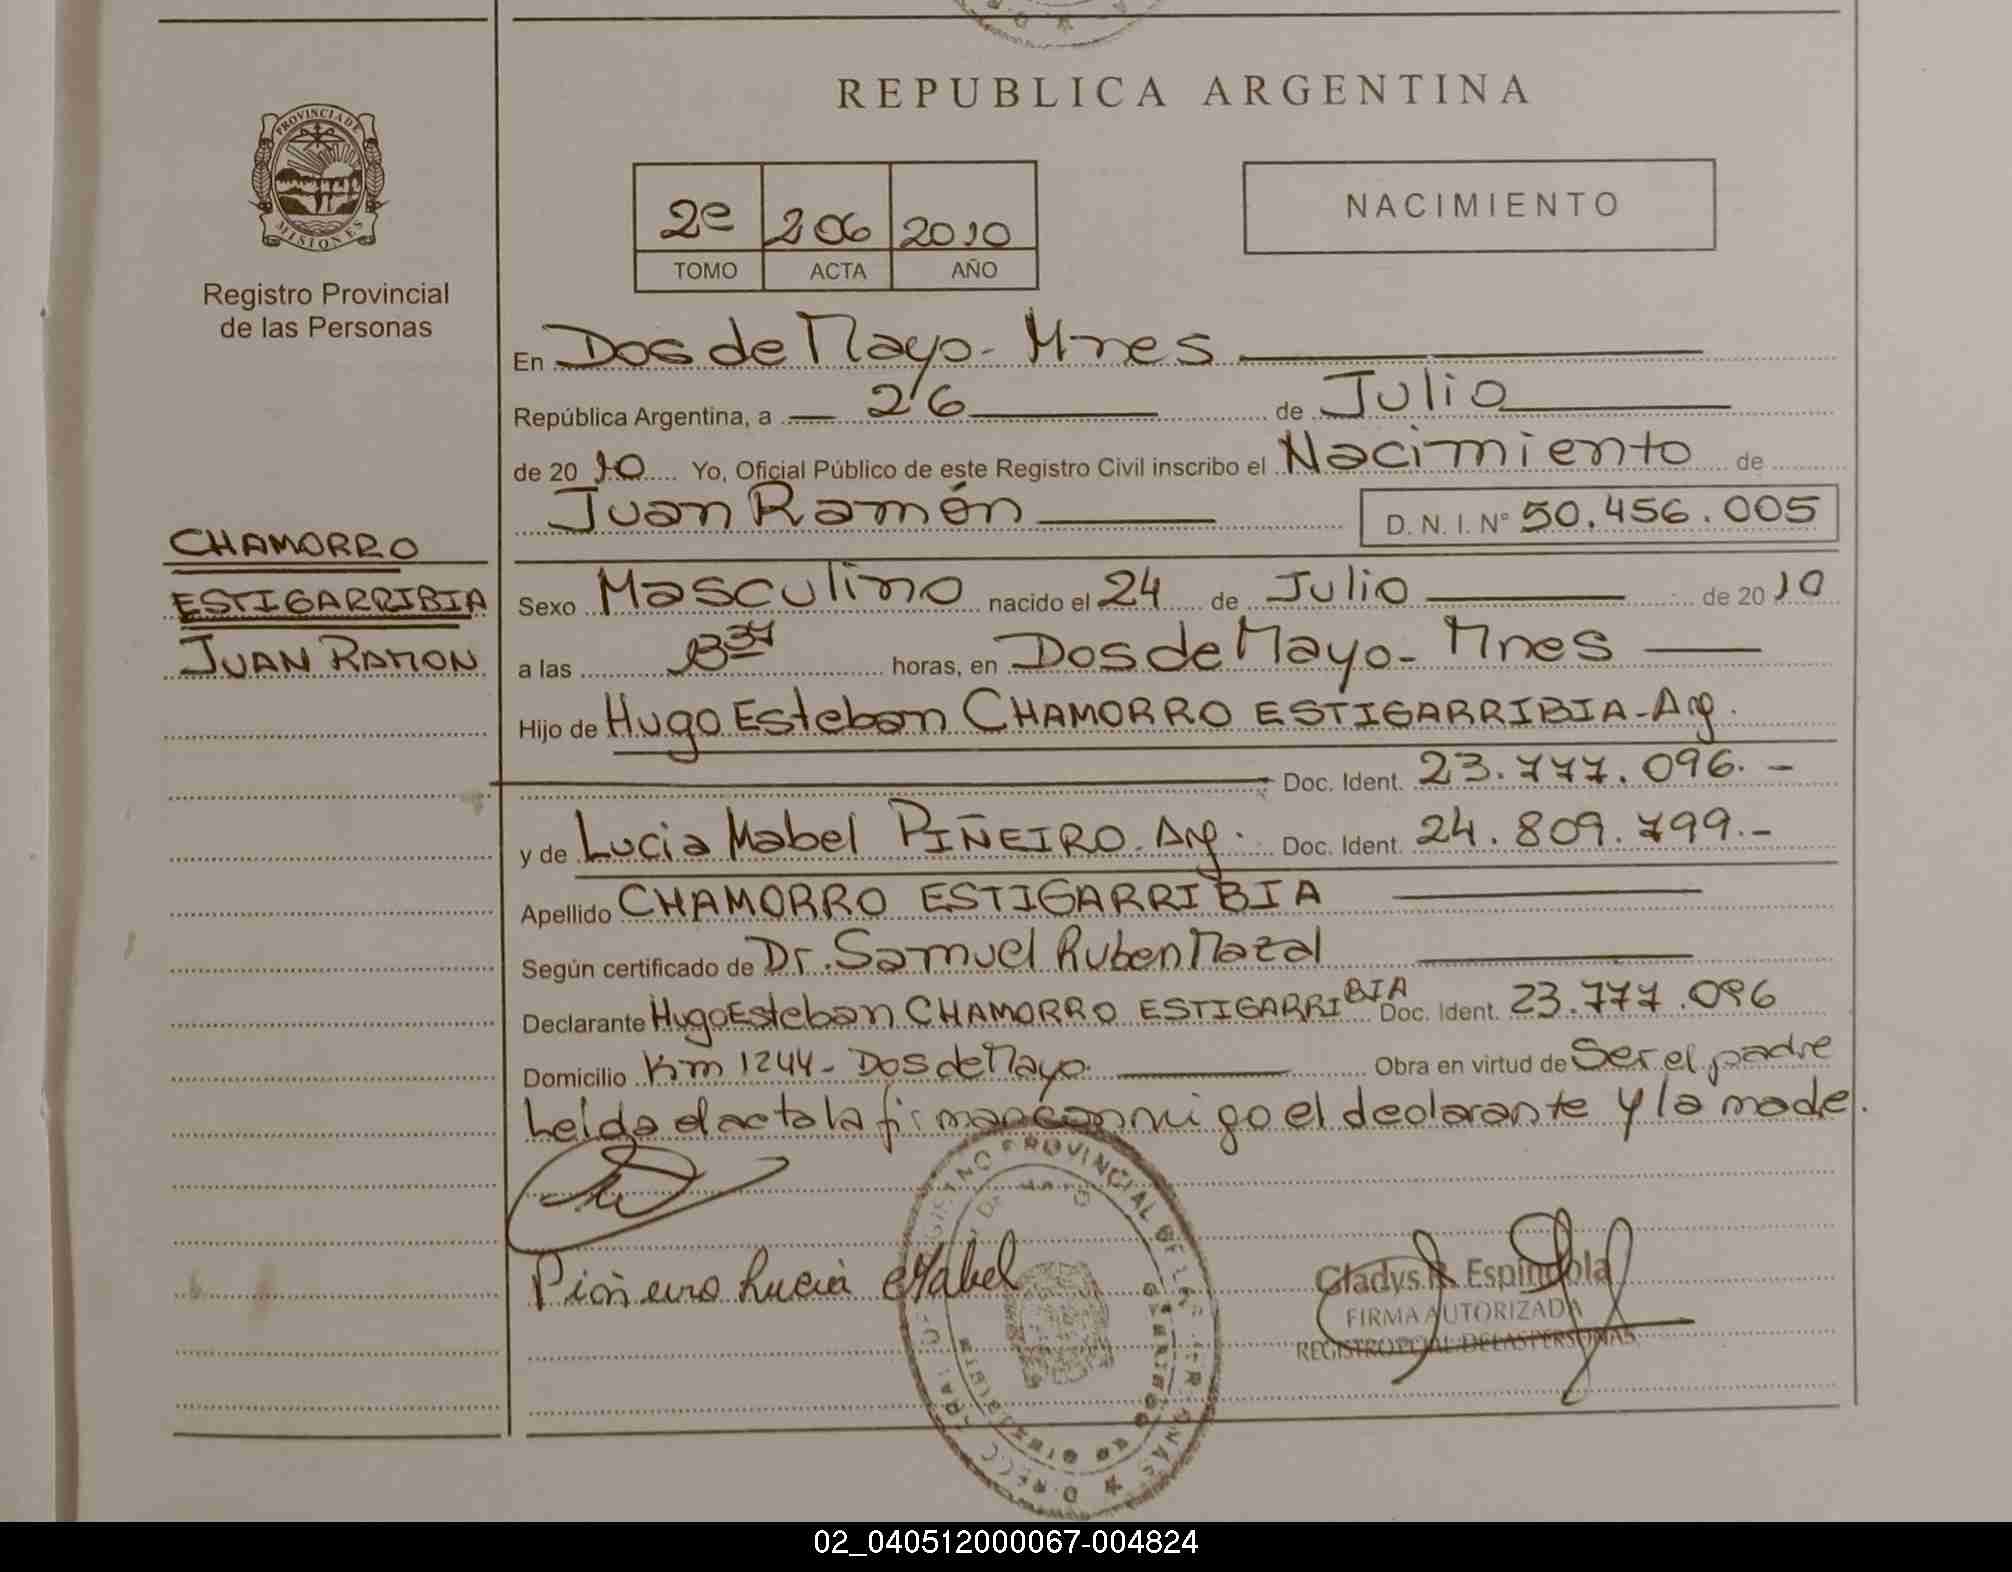 REPUBLICA ARGENTINA
PROVINCIA DE
MISIONES
Registro Provincial
de las Personas
2e 206 2010
TOMO ACTA AÑO
NACIMIENTO
En Dos de Mayo - Mnes
República Argentina, a 26 de Julio
de 2010 Yo, Oficial Público de este Registro Civil inscribo el Nacimiento de
Juan Ramón D. N. I. N° 50.456.005
CHAMORRO
ESTIGARRIBIA
JUAN RAMON
Sexo Masculino nacido el 24 de Julio de 2010
a las horas, en Dos de Mayo - Mnes
Hijo de Hugo Esteban CHAMORRO ESTIGARRIBIA - Arg.
Doc. Ident. 23.777.096. -
y de Lucia Mabel PIÑEIRO. Arg. Doc. Ident. 24.809.799. -
Apellido CHAMORRO ESTIGARRIBIA
Según certificado de Dr. Samuel Ruben Mazal
Declarante Hugo Esteban CHAMORRO ESTIGARRIBIA Doc. Ident. 23.777.096
Domicilio Km 1244 - Dos de Mayo. Obra en virtud de Ser el padre
Leída el acta la firman conmigo el declarante y la made.
Piñeiro Lucia Mabel
REGISTRO PROVINCIAL DE LAS PERSONAS
Gladys R. Espindola
FIRMA AUTORIZADA
REGISTRO PCIAL. DE LAS PERSONAS
02_040512000067-004824